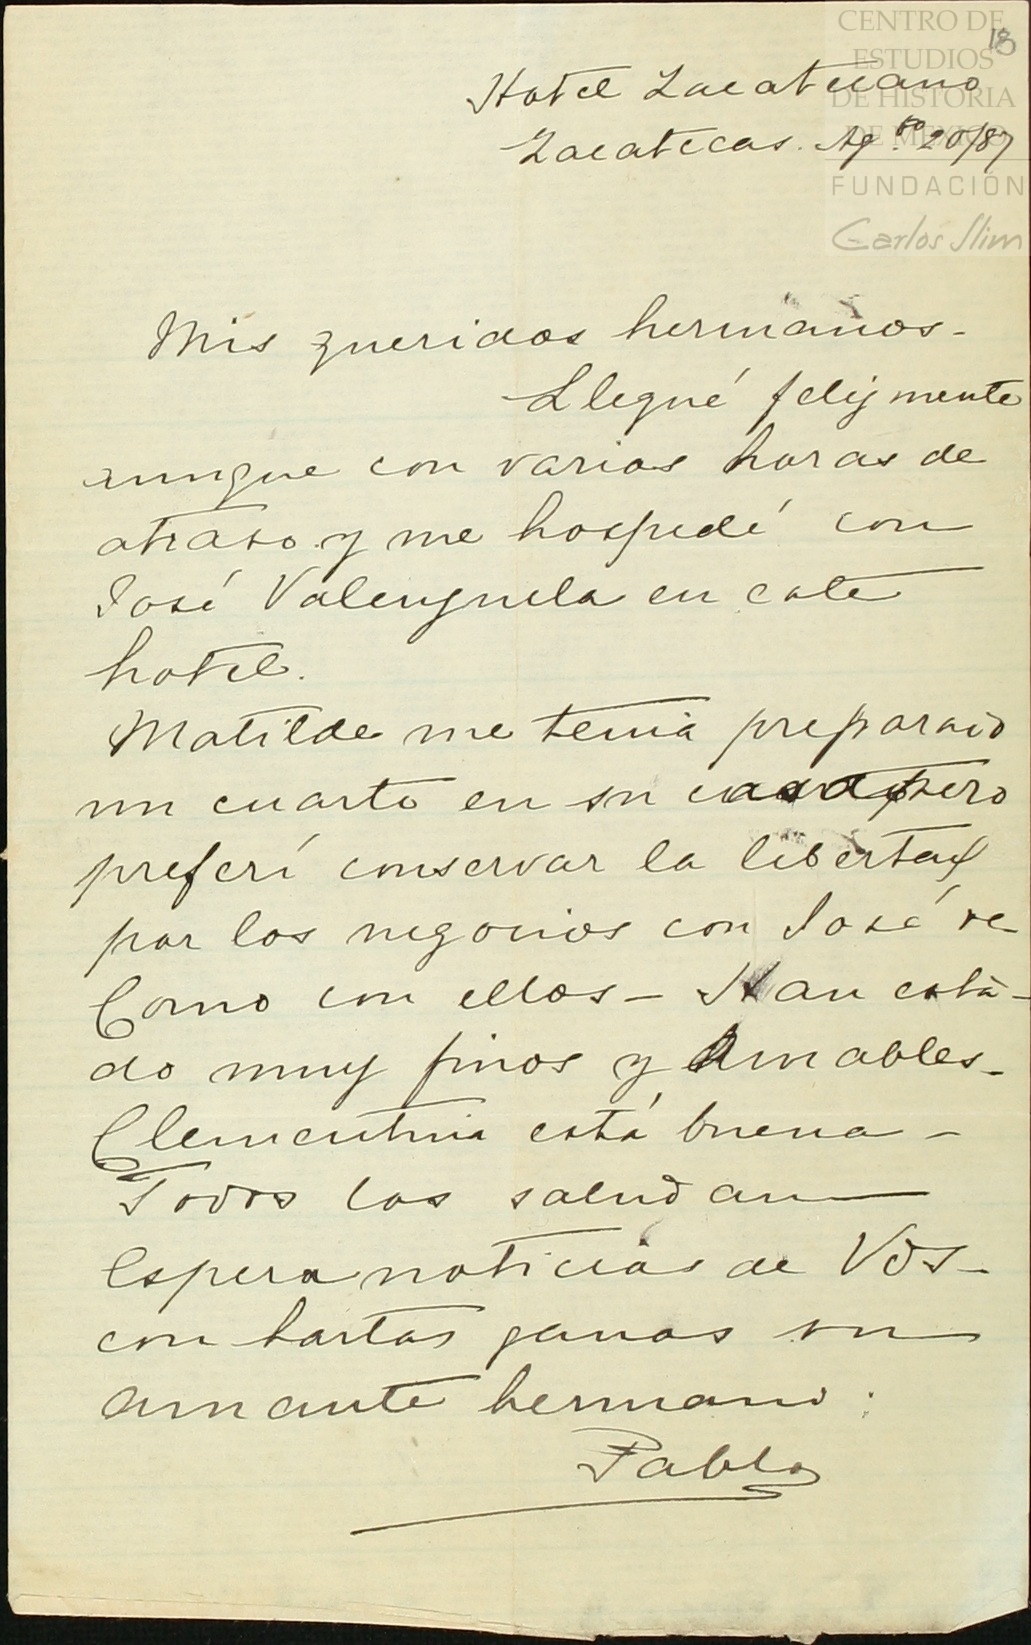 CENTRO DE
ESTUDIOS
DE HISTORIA
DE MÉXICO
FUNDACIÓN
Carlos Slim
18
Hotel Zacatecano
Zacatecas. Agto. 20/87
Mis queridos hermanos-
Llegué felizmente
aunque con varias horas de
atraso y me hospedé con
José Valenzuela en este
hotel.
Matilde me tenia preparado
un cuarto en su casa pero
preferí conservar la libertad
por los negocios con José
Como con ellos - Han esta-
do muy finos y amables-
Clementina está buena-
Todos los saludan
Espera noticias de Vds-
con hartas ganas su
amante hermano:
Pablo